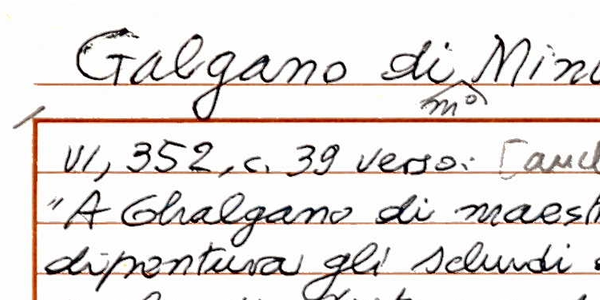 Galgano di Min
m°
VI, 352, c. 39 verso: [
"A Ghalgano di maest
dipentura gli schudi